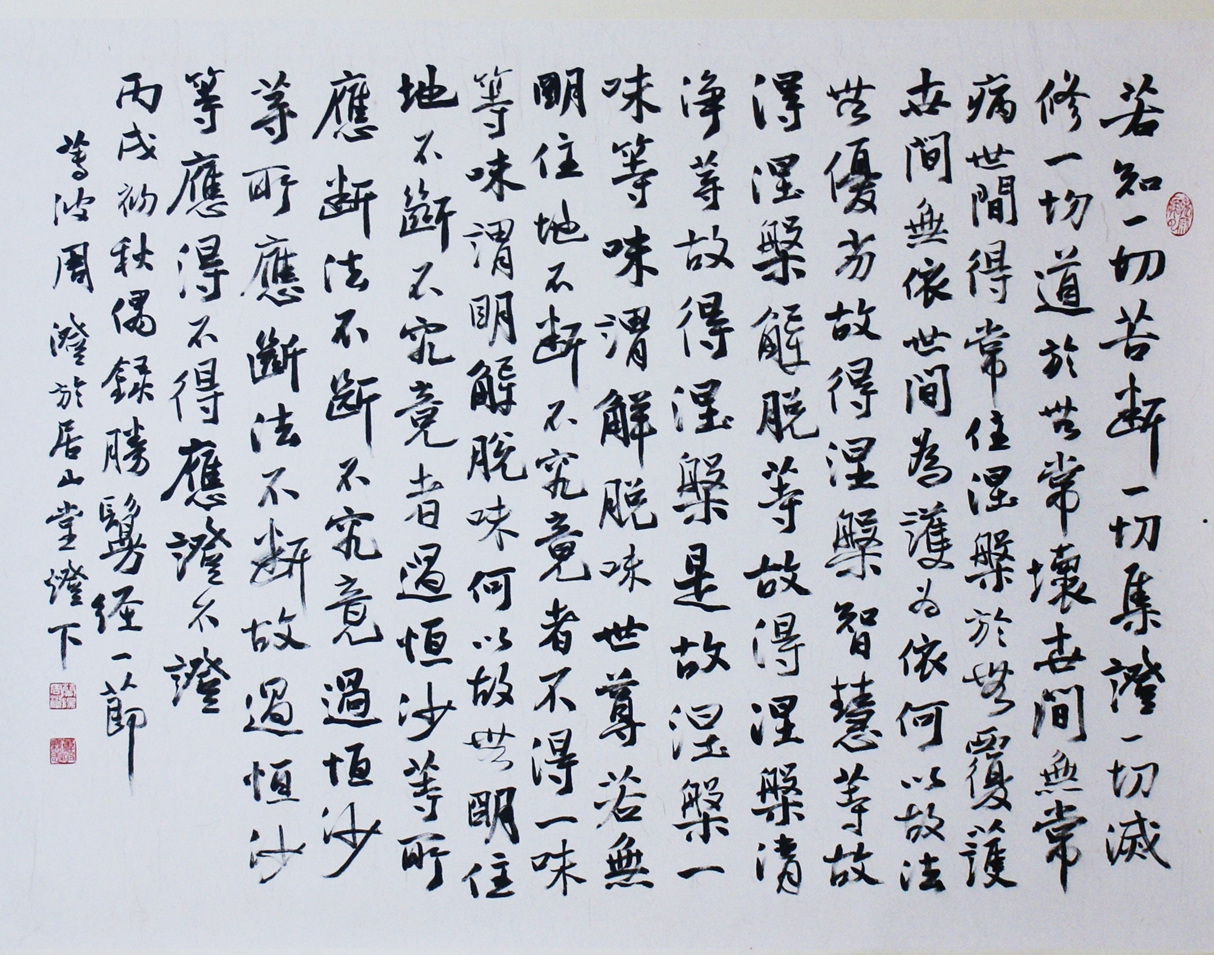 若知一切苦断一切集證一切滅
修一切道於世常壞世間無常
病世間得常住涅槃於世覆護
世間無依世間為護为依何以故法
世優劣故得涅槃智慧等故
得涅槃解脱等故得涅槃清
净等故得涅槃是故涅槃一
味等味謂解脱味世尊若無
明住地不断不究竟者不得一味
等味謂明解脱味何以故世明住
地不斷不究竟者過恒沙等所
應断法不断不究竟過恒沙
等所應斷法不断故過恒沙
等應得不得應證不證
丙戌初秋偶録勝鬘经一節
周 澄於居山堂燈下